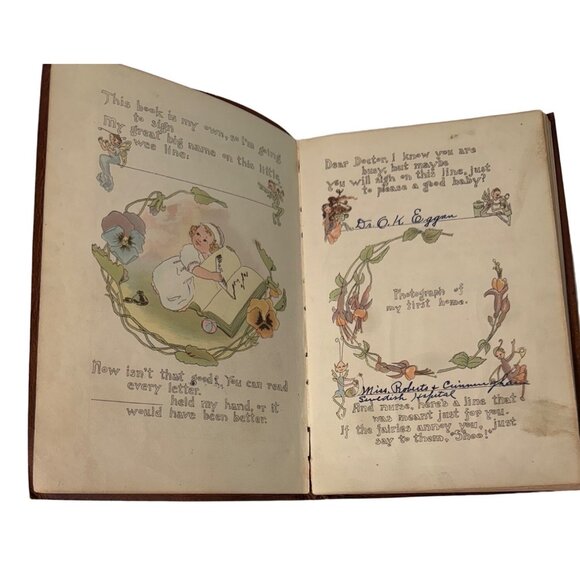 This book is my own, so I'm going
to sign
my great big name on this little
wee line:
Now isn't that good? You can read
every letter.
held my hand, or it
would have been better.
Dear Doctor, I know you are
busy, but maybe
you will sign on this line, just
to please a good baby?
Dr. O. K. Eggan
Photograph of
my first home.
Miss. Roberts & Cunningham
Swedish Hospital
And nurse, here's a line that
was meant just for you.
If the fairies annoy you, just
say to them, "Shoo!"